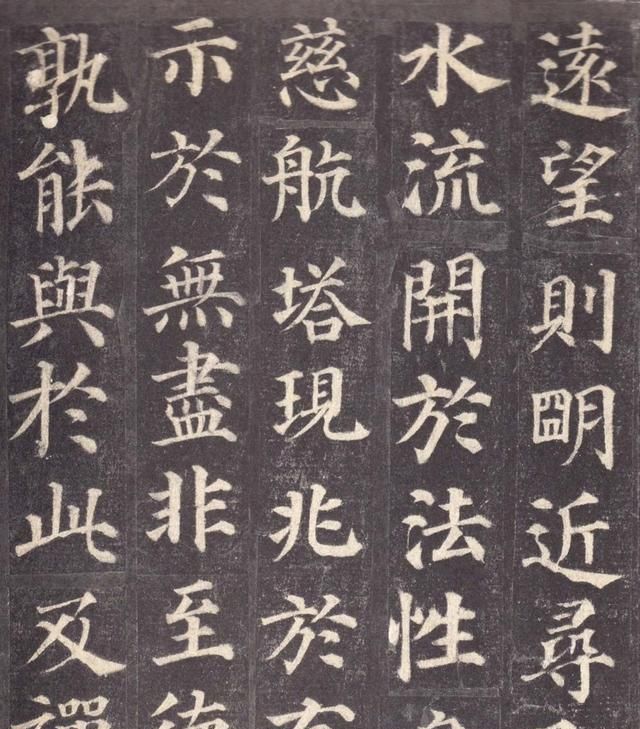 遠望則明近尋
水流開於法性
慈航塔現兆於有
示於無盡非至德
孰能與於此及禪